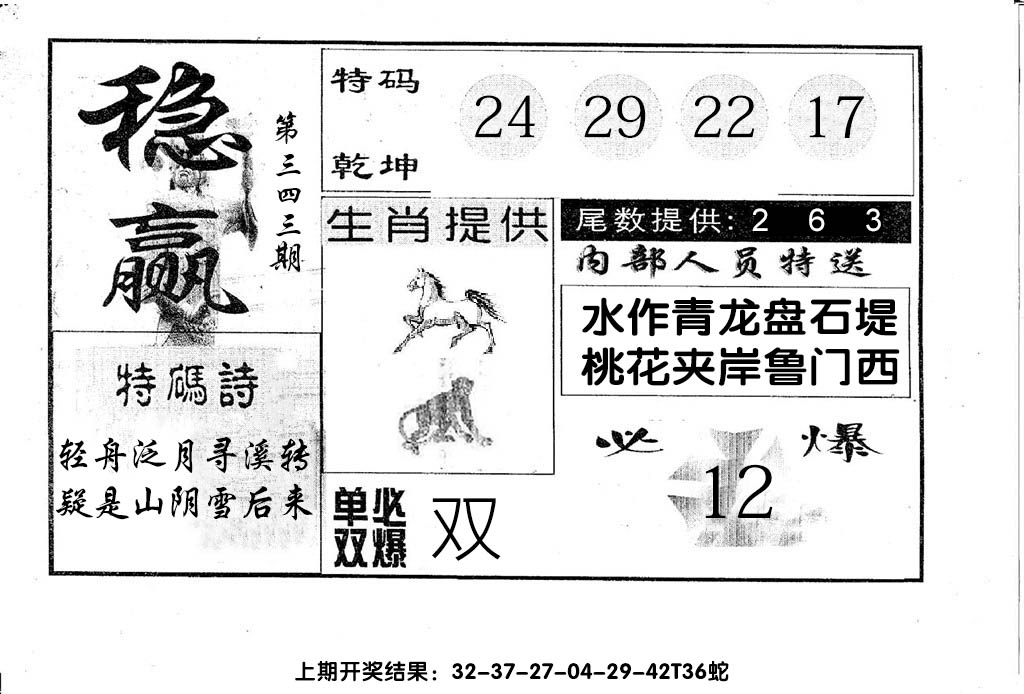 稳赢
第三四三期
特码诗
轻舟泛月寻溪转
疑是山阴雪后来
特码
乾坤
24 29 22 17
生肖提供
单双
必爆
双
尾数提供: 2 6 3
内部人员特送
水作青龙盘石堤
桃花夹岸鲁门西
必爆
12
上期开奖结果：32-37-27-04-29-42T36蛇